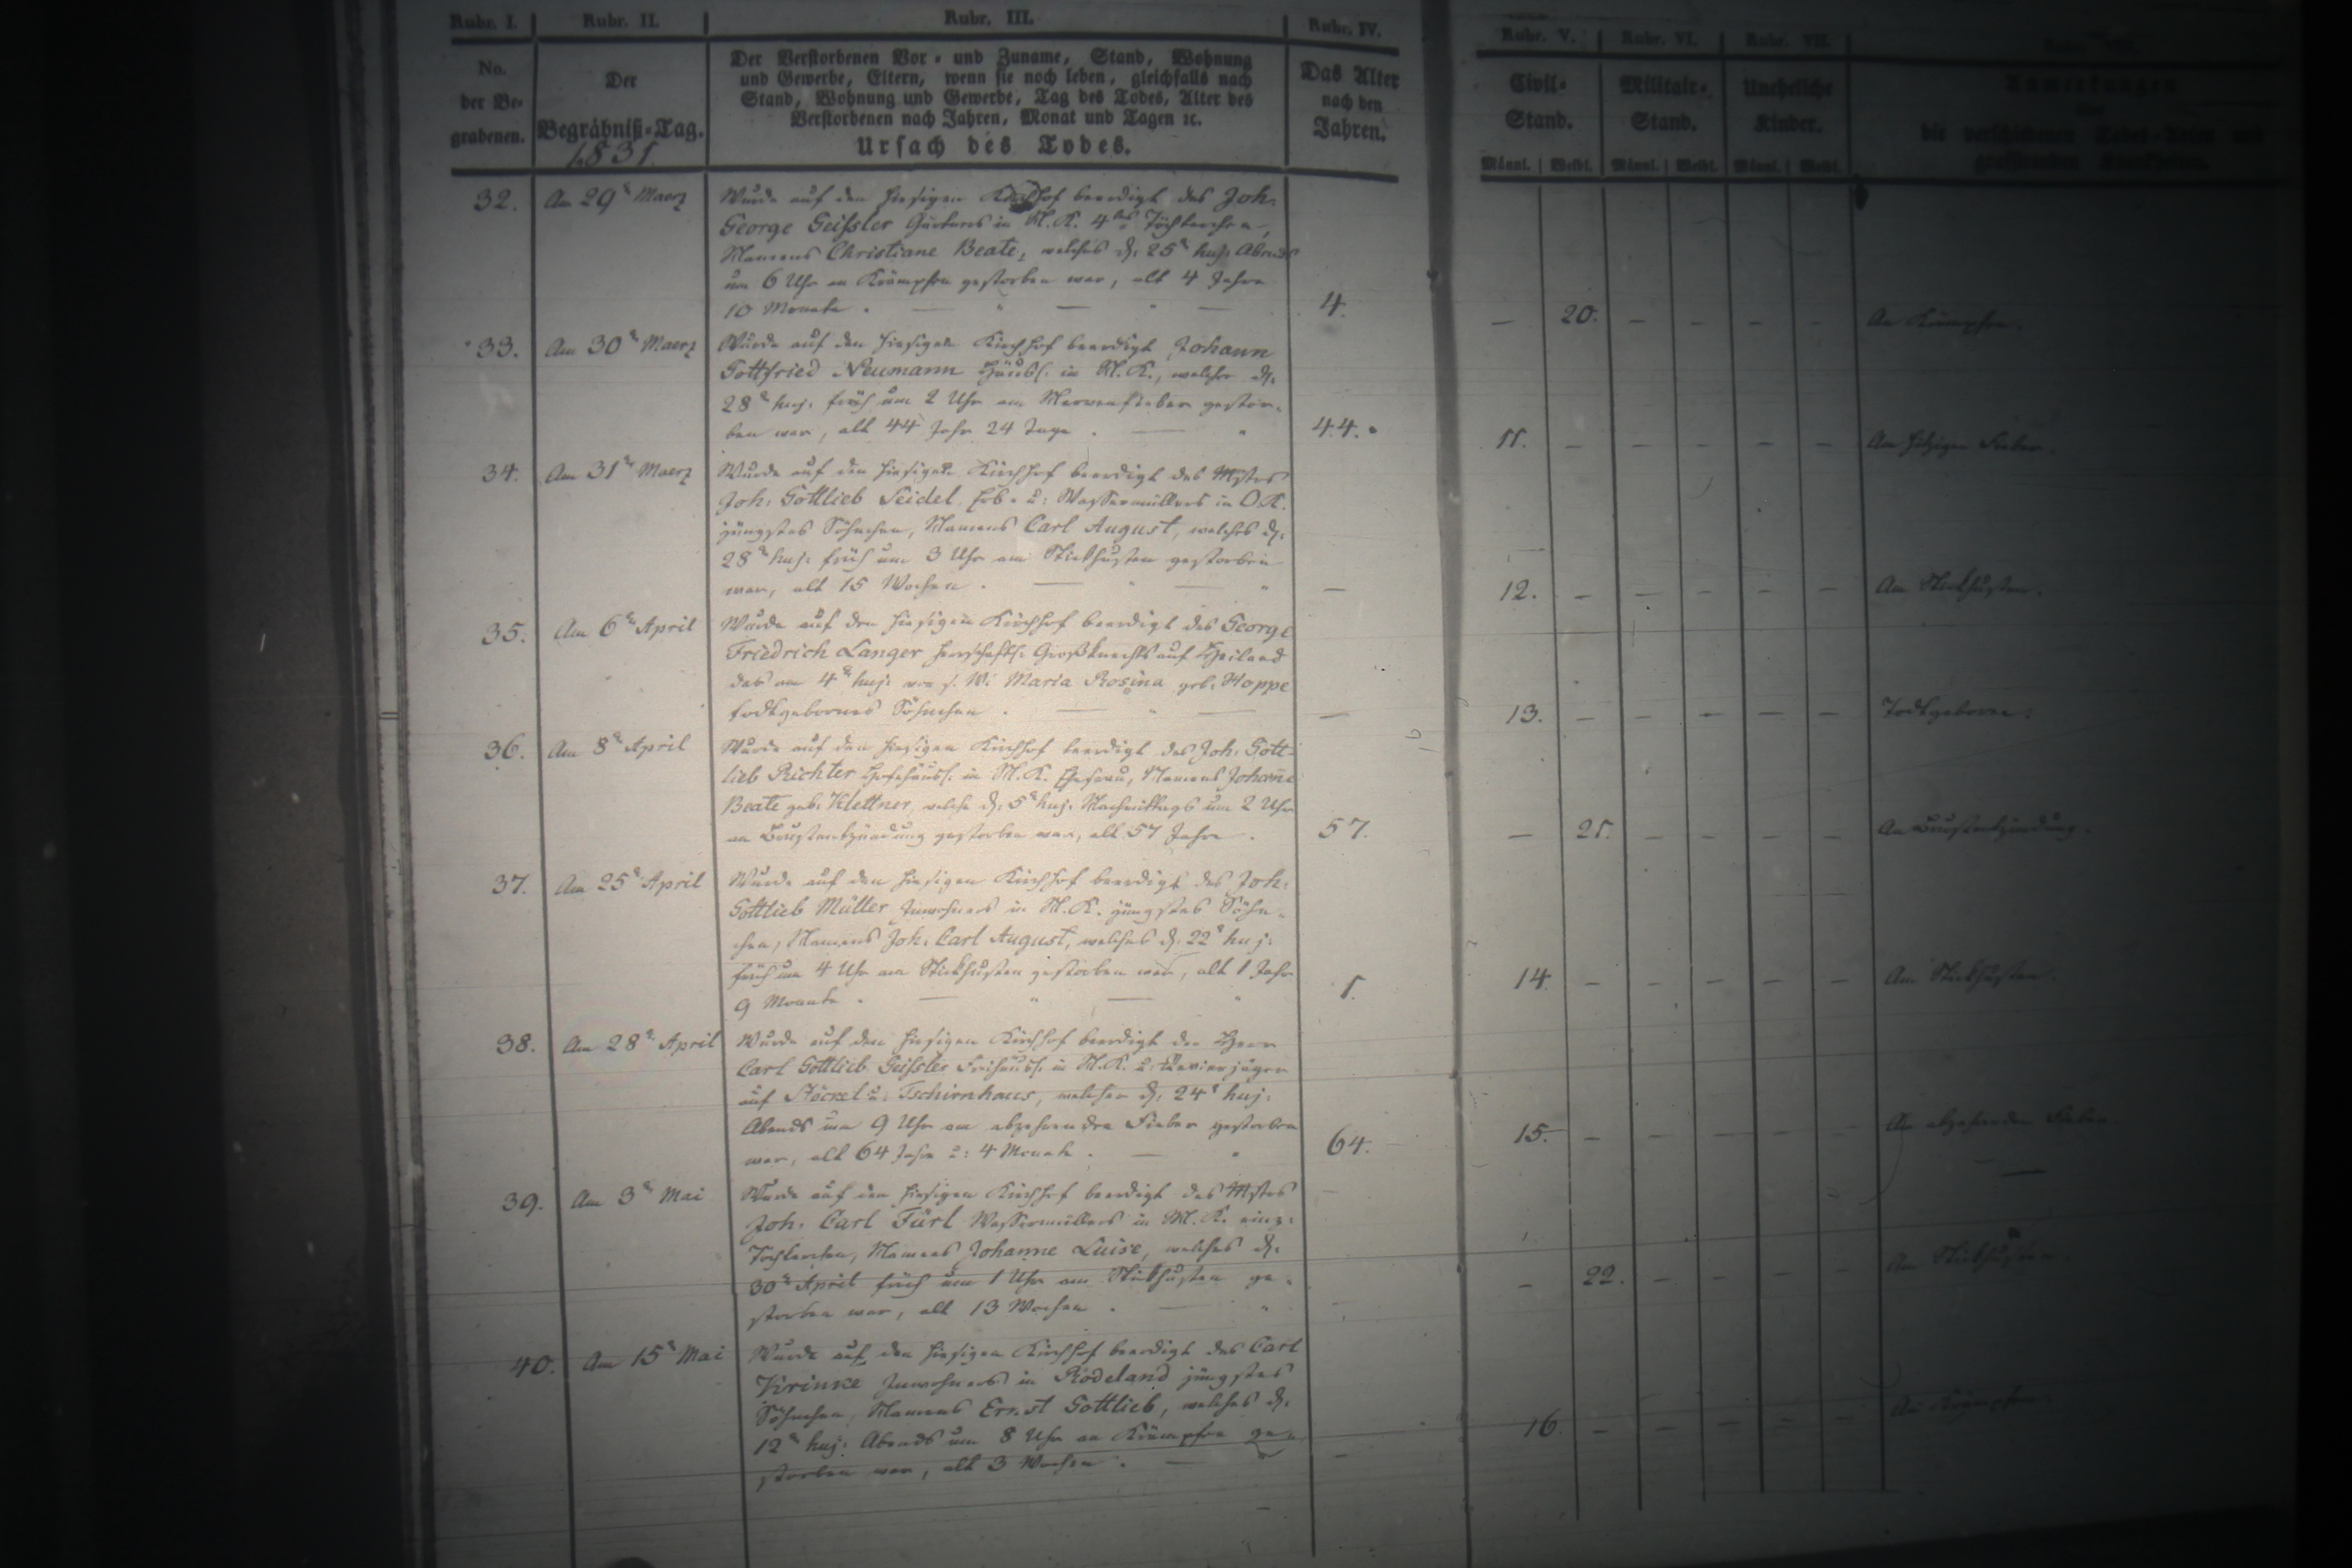 Rubr. I. Rubr. II. Rubr. III. Rubr. IV. Rubr. V. Rubr. VI. Rubr. VII.
No. der Begrabenen.
Der Begräbniß-Tag.
1831.
Der Verstorbenen Vor- und Zuname, Stand, Wohnung
und Gewerbe, Eltern, wenn sie noch leben, gleichfalls nach
Stand, Wohnung und Gewerbe, Tag des Todes, Alter des
Verstorbenen nach Jahren, Monat und Tagen ꝛc.
Ursach des Todes.
Das Alter
nach den
Jahren.
Civil-Stand.
Militair-Stand.
Uneheliche Kinder.
Anmerkungen
über
die verschiedenen Todes-Arten und
grassirenden Krankheiten.
Männl. Weibl. Männl. Weibl. Männl. Weibl.
32. Am 29n Maerz Wurde auf den hiesigen Kirchhof beerdigt des Joh.
George Geißler Gärtners in M. K. 4tes Töchterchen,
Namens Christiane Beate, welches d. 25n huj. Abends
um 6 Uhr an Krämpfen gestorben war, alt 4 Jahre
10 Monate. 4. – 20. – – – – An Krämpfen.
33. Am 30n Maerz Wurde auf den hiesigen Kirchhof beerdigt Johann
Gottfried Neumann Häusl. in M. K., welcher d.
28n huj. früh um 2 Uhr am Nervenfieber gestor-
ben war, alt 44 Jahr 24 Tage. 44. 11. – – – – – Am hitzigen Fieber.
34. Am 31n Maerz Wurde auf den hiesigen Kirchhof beerdigt des Mstrs
Joh. Gottlieb Seidel, Erb- u: Wassermüllers in O. K.
jüngstes Söhnchen, Namens Carl August, welches d.
28n huj. früh um 3 Uhr am Stickhusten gestorben
war, alt 15 Wochen. – 12. – – – – – Am Stickhusten.
35. Am 6n April Wurde auf den hiesigen Kirchhof beerdigt des George
Friedrich Langer herrschaftl. Großknechts auf Heiland
das am 4n huj. von s. W. Maria Rosina geb. Hoppe
todtgebornes Söhnchen. – 13. – – – – – Todtgeboren.
36. Am 8n April Wurde auf den hiesigen Kirchhof beerdigt des Joh. Gott-
lieb Richter Hofehäusl. in M. K. Ehefrau, Namens Johanne
Beate geb. Klettner, welche d. 5n huj. Nachmittags um 2 Uhr
an Brustentzündung gestorben war, alt 57 Jahre. 57. – 21. – – – – An Brustentzündung.
37. Am 25n April Wurde auf den hiesigen Kirchhof beerdigt des Joh.
Gottlieb Müller Inwohners in M. K. jüngstes Söhn-
chen, Namens Joh. Carl August, welches d. 22n huj.
früh um 4 Uhr am Stickhusten gestorben war, alt 1 Jahr
9 Monate. 1. 14. – – – – – Am Stickhusten.
38. Am 28n April Wurde auf den hiesigen Kirchhof beerdigt der Herr
Carl Gottlieb Geißler Freihäusl. in M. K. u. Revierjäger
auf Stöckel u. Tschirnhaus, welcher d. 24n huj.
Abends um 9 Uhr am abzehrenden Fieber gestorben
war, alt 64 Jahre u: 4 Monate. 64. 15. – – – – – Am abzehrenden Fieber.
39. Am 3n Mai Wurde auf den hiesigen Kirchhof beerdigt des Mstrs
Joh. Carl Fürl Wassermüllers in M. K. einz.
Töchterchen, Namens Johanne Luise, welches d.
30n April früh um 1 Uhr am Stickhusten ge-
storben war, alt 13 Wochen. – – 22. – – – – Am Stickhusten.
40. Am 15n Mai Wurde auf den hiesigen Kirchhof beerdigt des Carl
Krinke Inwohners in Rödeland jüngstes
Söhnchen, Namens Ernst Gottlieb, welches d.
12n huj. Abends um 8 Uhr an Krämpfen ge-
storben war, alt 3 Wochen. – 16. – – – – – An Krämpfen.